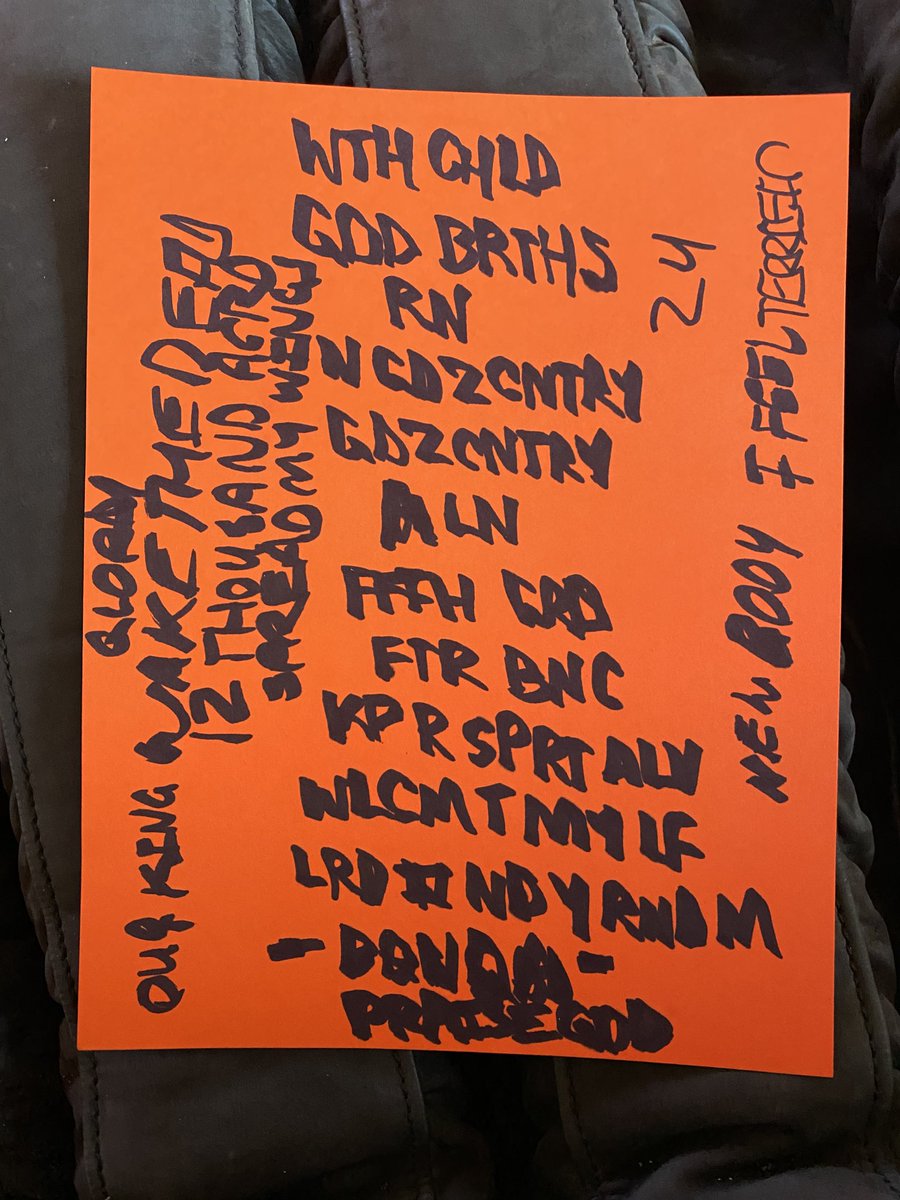 WTH CHLD
GOD BRTHS
RN
N GDZ CNTRY
GDZ CNTRY
ALN
FTH GRD
FTR BNC
KP R SPRT ALV
WLCM T MY LF
LRD I ND Y RND M
- DONDA -
PRAISE GOD
24
NEW BODY I FEEL
GLORY
OUR KING WAKE THE DEAD
12 THOUSAND
SPREAD MY WINGS